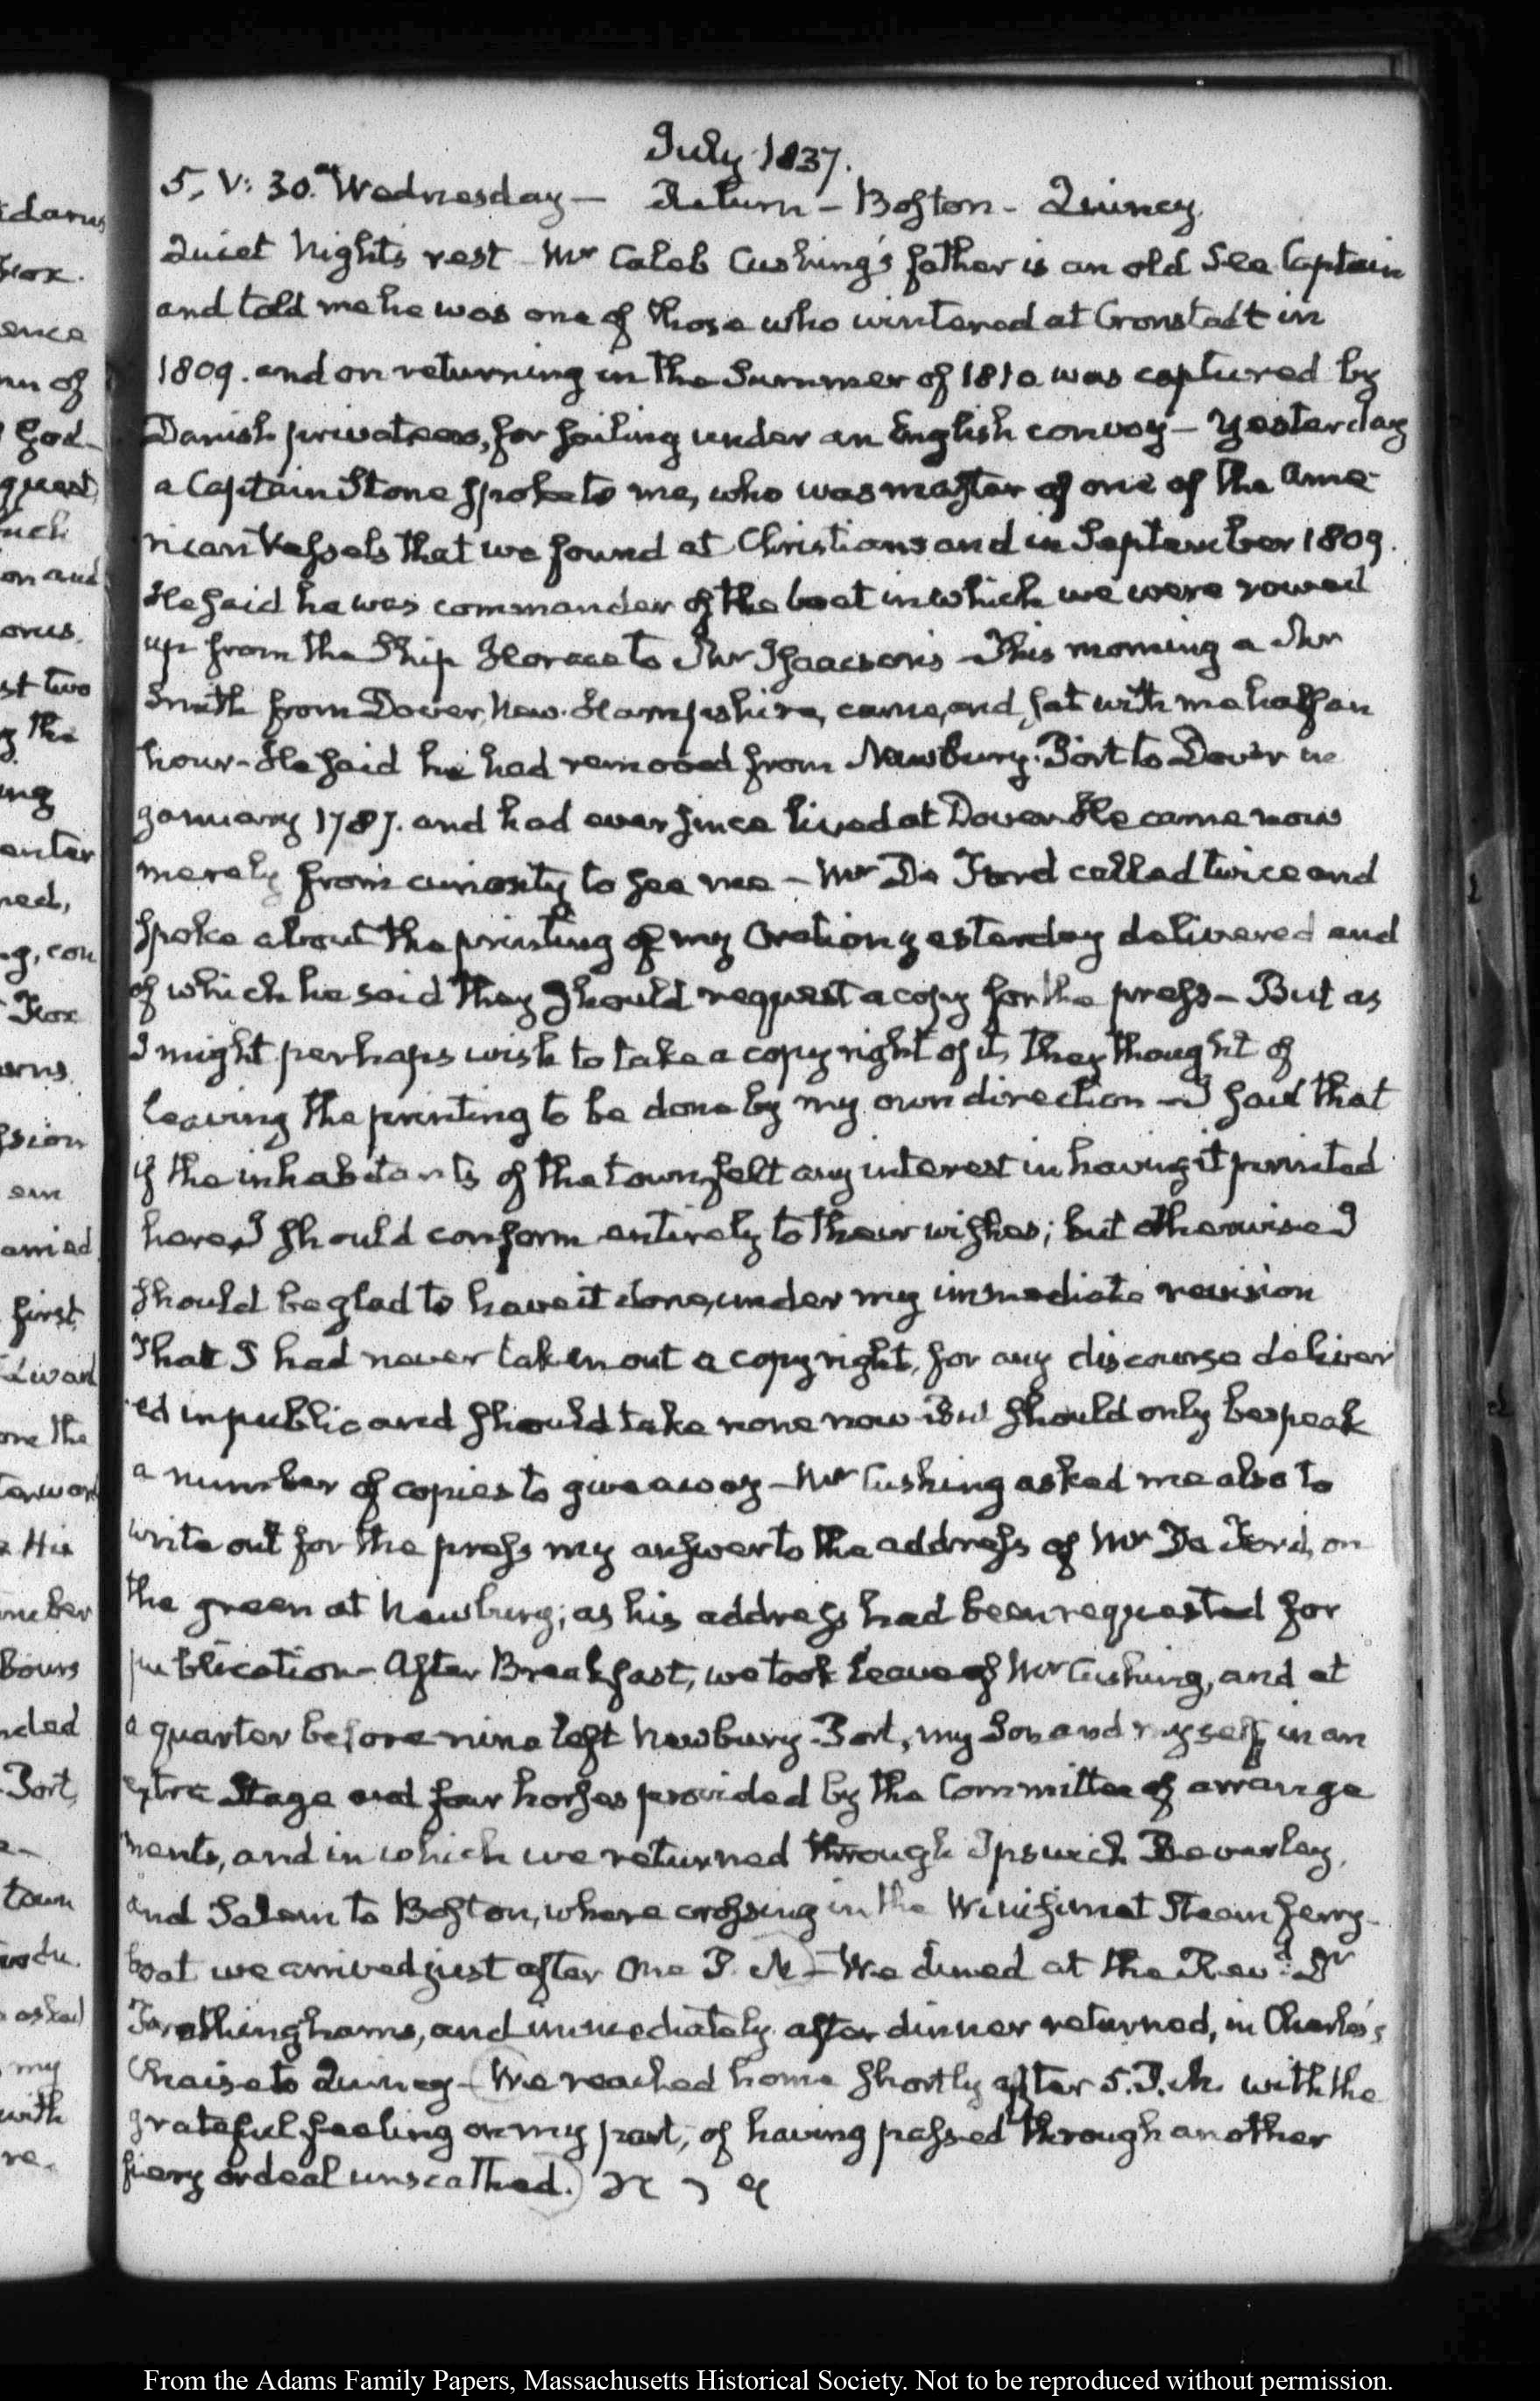 July 1837.
5. V: 30. Wednesday — Return — Boston — Quincy.
Quiet Nights rest — Mr Caleb Cushing's father is an old Sea Captain
and told me he was one of those who wintered at Cronstadt in
1809. and on returning in the Summer of 1810 was captured by
Danish privateers, for sailing under an English convoy — Yesterday
a Captain Stone spoke to me, who was master of one of the Ame-
rican Vessels that we found at Christiansand in September 1809.
He said he was commander of the boat in which we were rowed
up from the Ship Horace to Mr Isaacson's — This morning a Mr
Smith from Dover, New-Hampshire, came, and sat with me half an
hour — He said he had removed from Newbury-Port to Dover in
January 1787. and had ever since lived at Dover. He came now
merely from curiosity to see me — Mr De Ford called twice and
spoke about the printing of my Oration yesterday delivered and
of which he said they should request a copy for the press — But as
I might perhaps wish to take a copy right of it, they thought of
leaving the printing to be done by my own direction — I said that
if the inhabitants of the town felt any interest in having it printed
here, I should conform entirely to their wishes; but otherwise I
should be glad to have it done, under my immediate revision
That I had never taken out a copy right, for any discourse deliver
ed in public and should take none now But should only bespeak
a number of copies to give away — Mr Cushing asked me also to
write out for the press my answer to the address of Mr De Ford, on
the green at Newbury; as his address had been requested for
publication — After Breakfast, we took leave of Mr Cushing, and at
a quarter before nine left Newbury-Port, my Son and myself, in an
extra Stage and four horses provided by the Committee of arrange
ments, and in which we returned through Ipswich Beverley,
and Salem to Boston, where crossing in the Winisimet Steam ferry-
boat we arrived just after One P.M. — We dined at the Revd. Dr
Frothingham's, and immediately after dinner returned, in Charles's
Chaise to Quincy — (We reached home shortly after 5. P.M. with the
grateful feeling on my part, of having passed through another
fiery ordeal unscathed.)
From the Adams Family Papers, Massachusetts Historical Society. Not to be reproduced without permission.